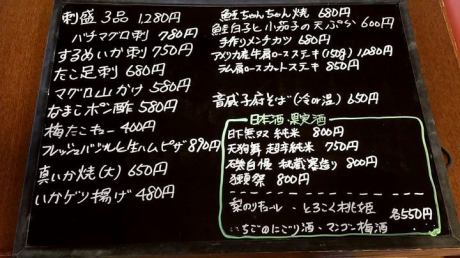 刺盛 3品 1,280円
バチマグロ刺 780円
するめいか刺 750円
たこ足刺 680円
マグロ山かけ 580円
なまこポン酢 580円
梅たこキュー 400円
フレッシュバジルと生ハムピザ 890円
真いか焼(大) 650円
いかゲソ揚げ 480円
鮭ちゃんちゃん焼 680円
鮭白子と小茄子の天ぷら 600円
手作りメンチカツ 680円
アメリカ産牛肩ロースステーキ(150g) 1,080円
ラム肩ロースカットステーキ 850円
音威子府そば(冷or温) 650円
日本酒・果実酒
日下無双 純米 800円
天狗舞 超辛純米 750円
磯自慢 秘蔵寒造り 800円
獺祭 800円
梨のリキュール・とろこく桃姫
いちごのにごり酒・マンゴー梅酒
各550円